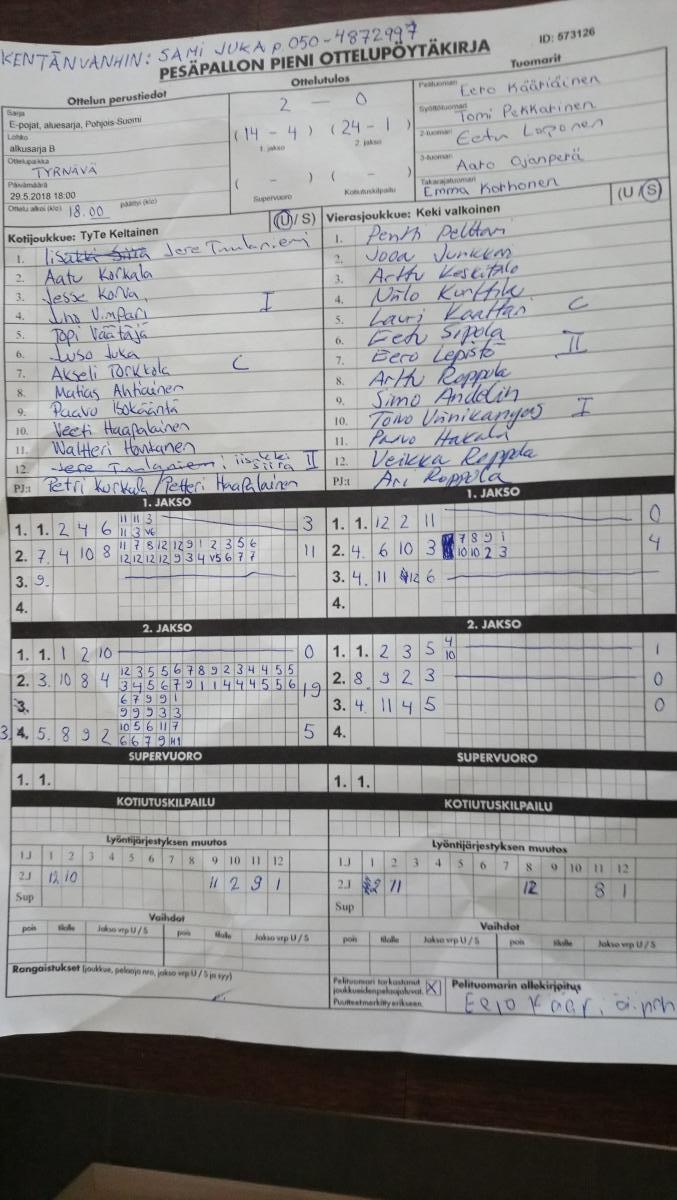 KENTÄNVANHIN: SAMI JUKA p. 050-4872997
PESÄPALLON PIENI OTTELUPÖYTÄKIRJA
ID: 573126
Ottelun perustiedot
Sarja
E-pojat, aluesarja, Pohjois-Suomi
Lohko
alkusarja B
Ottelupaikka
TYRNÄVÄ
Päivämäärä
29.5.2018 18:00
Ottelu alkoi (klo) 18.00 päättyi (klo)
Ottelutulos
2 - 0
(14 - 4) (24 - 1)
1. jakso 2. jakso
( - ) ( - )
Supervuoro Kotiutuskilpailu
Tuomarit
Pelituomari Eero Kääriäinen
Syöttötuomari Tomi Pekkarinen
2-tuomari Eetu
3-tuomari Aaro Ojanperä
Takarajatuomari Emma Korhonen
(U / S)
Kotijoukkue: TyTe Keltainen
1. Jere Tuulaniemi
2. Aatu Korkala
3. Jesse Korva
4. Juho Vimpari I
5. Topi Väätäjä
6. Juso Juka
7. Akseli Törkkola C
8. Matias Ahtiainen
9. Paavo Isokääntä
10. Veeti Haapalainen
11. Waltteri Hantanen
12. II
PJ:t Petri Korkala / Petteri Haapalainen
(U / S)
Vierasjoukkue: Keki valkoinen
1. Pentti Pelttari
2. Joda Junkkari
3. Arttu Keskitalo
4. Niilo Kurttila
5. Lauri Kaattari C
6. Eetu Sipola
7. Eero Lepistö II
8. Arttu Roppola
9. Simo Andelin
10. Toivo Väinikangas I
11. Paavo Hakala
12. Veikka Roppola
PJ:t Ari Roppola
1. JAKSO
1. 1. 2 4 6 11 11 3 3
11 3 V6
2. 7. 4 10 8 11 7 8 12 12 9 1 2 3 5 6 11
12 12 12 12 9 3 4 V5 6 7 7
3. 9.
4.
1. JAKSO
1. 1. 12 2 11 0
2. 4. 6 10 3 7 8 9 1 4
10 10 2 3
3. 4. 11 12 6
4.
2. JAKSO
1. 1. 1 2 10 0
2. 3. 10 8 4 12 3 5 5 6 7 8 9 2 3 4 4 5 5 19
3 4 5 6 7 9 1 1 4 4 4 5 5 6
3. 6 7 9 9 1
9 9 9 3 3
3. 4. 5. 8 9 2 10 5 6 11 7 5
6 6 7 9 H1
2. JAKSO
1. 1. 2 3 5 4 1
10
2. 8. 9 2 3 0
3. 4. 11 4 5 0
4.
SUPERVUORO
1. 1.
SUPERVUORO
1. 1.
KOTIUTUSKILPAILU
KOTIUTUSKILPAILU
Lyöntijärjestyksen muutos
1.J 1 2 3 4 5 6 7 8 9 10 11 12
2.J 12 10 11 2 9 1
Sup
Lyöntijärjestyksen muutos
1.J 1 2 3 4 5 6 7 8 9 10 11 12
2.J 2 11 12 8 1
Sup
Vaihdot
pois tilalle Jakso vrp U / S pois tilalle Jakso vrp U / S
Vaihdot
pois tilalle Jakso vrp U / S pois tilalle Jakso vrp U / S
Rangaistukset (joukkue, pelaaja nro, jakso vrp U / S ja syy)
Pelituomari tarkastanut
joukkueiden pelaajaluvat. X
Puutteet merkitty erikseen.
Pelituomarin allekirjoitus
Eero Kääriäinen